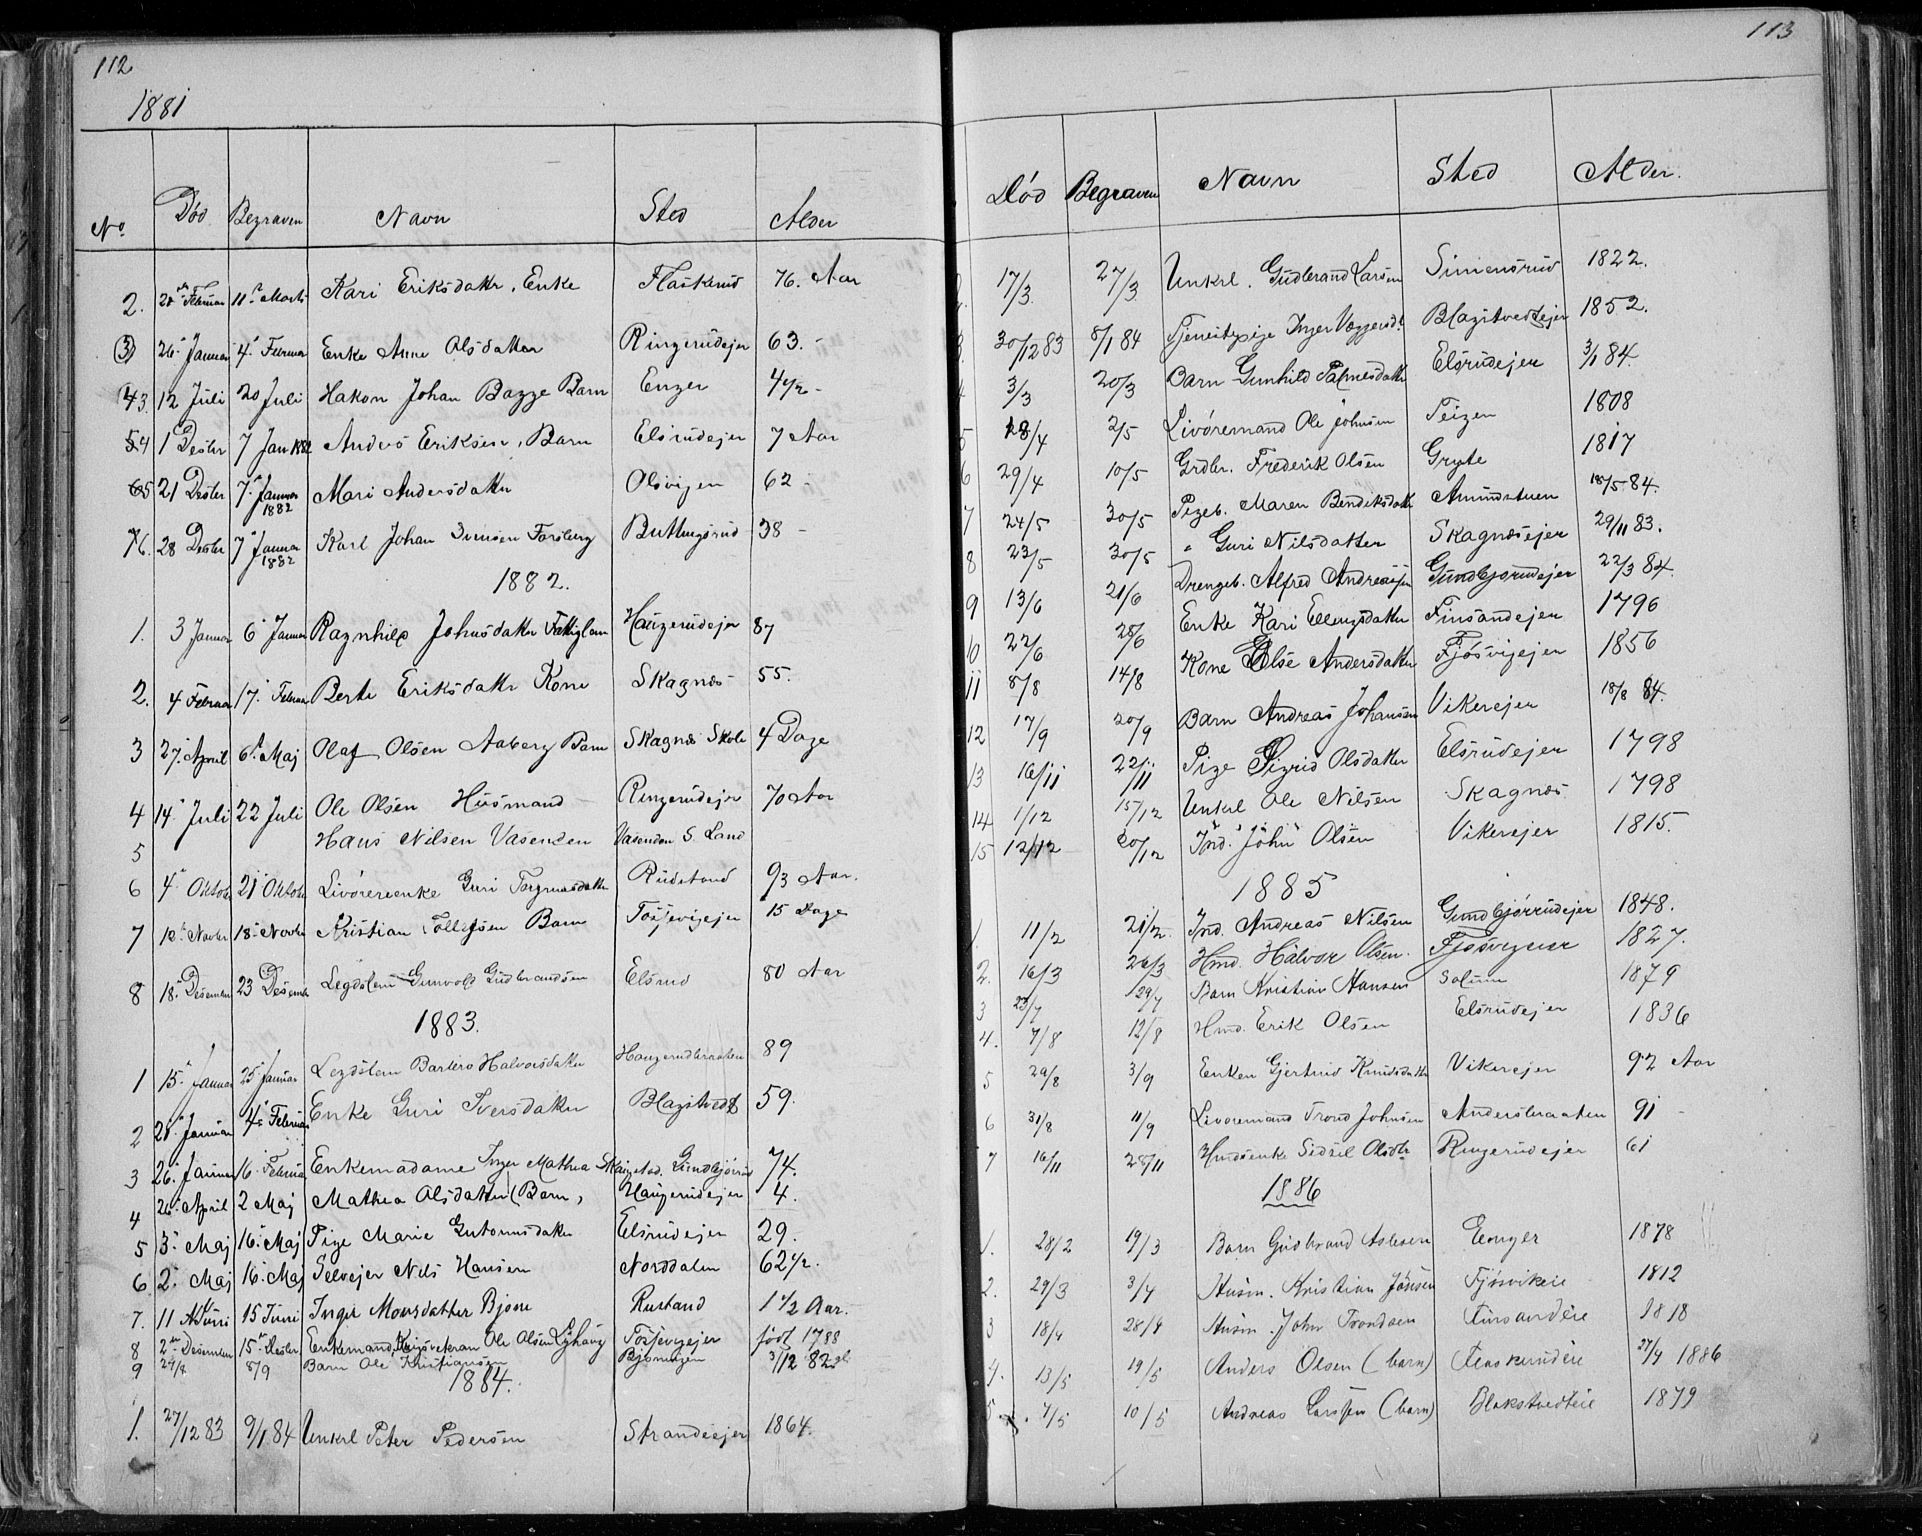 112
1881
No Død Begraven Navn Sted Alder
2. 20de Februar 11te Marts Kari Eriksdatter, Enke Flaskerud 76. Aar
3) 26. Januar 4. Februar Enke Anne Olsdatter Ringerudejer 63. -
3. 12 Juli 20 Juli Hakon Johan Bagge Barn Enger 4 1/2 -
4 1 Desbr 7 Jan 1882 Anders Eriksen, Barn Elsrudejer 7 Aar
5 21 Desbr 7. Januar 1882 Mari Andersdatter Olsvigen 62 -
6. 28 Desbr 7. Januar 1882 Karl Johan Svensen Forsberg Buttingsrud 38 -
1882.
1. 3 Januar 6 Januar Ragnhild Johnsdatter Fattiglem Haugerudejer 87
2. 4 Februar 17. Februar Berte Eriksdatter Kone Skagnæs 55.
3 27. April 6. Maj Olaf Olsen Aaberg Barn Skagnæs Skole 4 Dage
4 14. Juli 22 Juli Ole Olsen Husmand Ringerudejer 70 Aar
5 Hans Nilsen Vasenden Vasenden S. Land
6 4. Oktober 21. Oktober Livøreenke Guri Torgrimsdatter Rudstand 93 Aar.
7 12. Novbr 18. Novbr Kristian Tollefsen Barn Tosjevigejer 15 Dage
8 18. Desember 23 Desember Legdslem Gunvold Gudbrandsen Elsrud 80 Aar
1883.
1 15. Januar 25. Januar Legdslem Barbro Halvorsdatter Haugerudbraaten 89
2 21. Januar 4. Februar Enke Guri Iversdatter Blagstvedt 59.
3 26. Januar 16. Februar Enkemadame Inger Mathea Skaugstad. Gundbjørrud 74.
4 26. April 2 Maj Mathea Olsdatter (Barn, Haugerudejer 4.
5 3. Maj 16. Maj Pige Marie Gutormsdatter Elsrudejer 29.
6 2. Maj 16. Maj Selvejer Nils Hansen Norddalen 62 1/2.
7. 11 Juni 15 Juni Inger Monsdatter Bjone Rustand 1 1/2 Aar.
8 2den Desember 15de Desbr Enkemand, Krigsveteran Ole Olsen Lyhaug Tosjevigejer født 1788
9 24/8 8/9 Barn Ole Kristiansen Bjørningen 3/12 82
1884.
1. 27/12 83 9/1 84 Unkrl Peter Pedersen Strandeejer 1864.
113
Død Begraven Navn Sted Alder.
2. 17/3 27/3 Unkrl. Gudbrand Larsen Simensrud 1822.
3. 30/12 83 8/1 84 Tjenestepige Inger Væggersdt Blagstvedtejer 1852.
4 3/3 20/3 Barn Gunhild Palmesdatter Elsrudejer 3/1 84.
5 28/4 2/5 Livøremand Ole Johnsen Teigen 1808
6 29/4 10/5 Grdbr. Frederik Olsen Gryte 1817
7 24/5 30/5 Pigeb. Maren Bendiksdatter Amundstuen 18/5 84.
8 23/5 30/5 " Guri Nilsdatter Skagnæsejer 29/11 83.
9 13/6 21/6 Drengeb. Alfred Andreassen Gundbjørrudejer 22/3 84.
10 22/6 28/6 Enke Kari Ellingsdatter Finsandejer 1796
11 8/8 14/8 Kone Else Andersdatter Fjøsvigejer 1856
12 17/9 20/9 Barn Andreas Johansen Vikerejer 18/8 84.
13 16/11 22/11 Pige Sigrid Olsdatter Elsrudejer 1798
14 1/12 15/12 Unkrl Ole Nilsen Skagnæs 1798
15 12/12 20/12 Ind. John Olsen Vikerejer 1815.
1885
1. 11/2 21/2. Ind. Andreas Nilsen Gundbjørrudejer 1848.
2. 16/3 26/3 Hmd. Halvor Olsen. Fjøsvigeier 1827.
3 23/7 29/7 Barn Kristian Hansen Solum 1879
4. 7/8 12/8 Hmd. Erik Olsen Elsrudejer 1836
5 29/8 3/9 Enken Gjertrud Knudsdatter Vikerejer 92 Aar
6 31/8 11/9 Livøremand Trond Johnsen Andersbraaten 91 -
7 16/11 28/11 Hmdsenke Sidsil Olsdtr Ringerudejer 61
1886
1. 28/2 19/3 Barn Gudbrand Aslesen Eenger 1878
2. 29/3 3/4 Husm. Kristian Jonsen Fjøsvikeie 1812
3 18/4 28/4 Husm. John Trondsen Finsandeie 1818
4. 13/5 19/5 Anders Olsen (barn) Flaskerudeie 27/4 1886
5 7/5 10/5 Andreas Larssen (barn) Blakstvedteie 1879